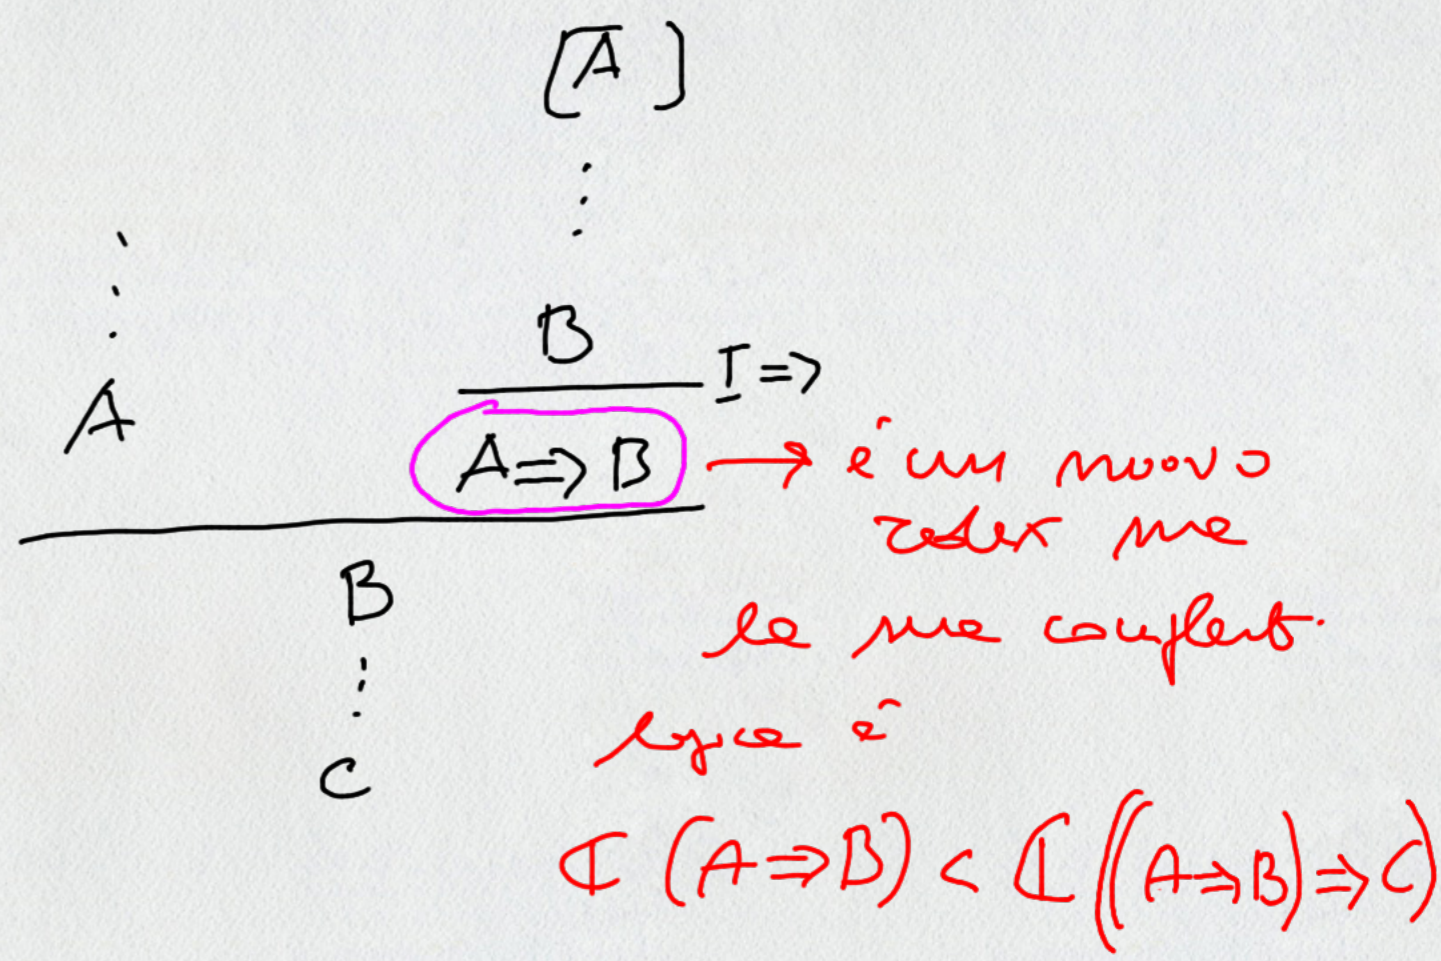 [A]
⋮
B
⋮
A
I ⇒
A ⇒ B → è un nuovo
redex ma
la sua complessit.
logica è
B
⋮
C
ℂ (A ⇒ B) < ℂ ((A ⇒ B) ⇒ C)